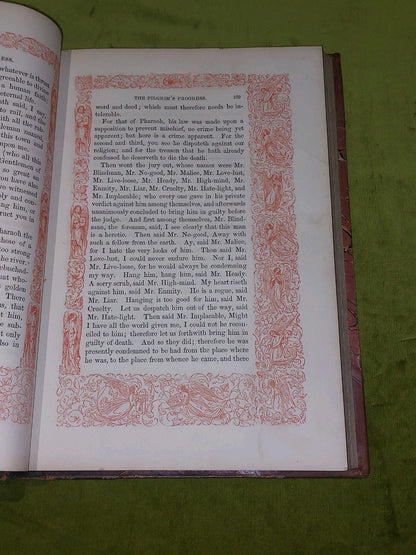 ESS.
whatever is thrust
greeable to divine
a human faith
eternal life.
uth said, I am
to rail, and the
of this town, with
attendants, this
this town and
upon me!
(who all this
Gentlemen of
so great an
have also
 witnessed
lies in your
bring him, or
truct you in
haraoh the
those of a
strong for
the river.
Nebuchad-
golden
There
that
sub-
also in
THE PILGRIM'S PROGRESS.
109
word and deed; which must therefore needs be in-
tolerable.
For that of Pharaoh, his law was made upon a
supposition to prevent mischief, no crime being yet
apparent; but here is a crime apparent. For the
second and third, you see he disputeth against our
religion; and for the treason that he hath already
confessed he deserveth to die the death.
Then went the jury out, whose names were Mr.
Blindman, Mr. No-good, Mr. Malice, Mr. Love-lust,
Mr. Live-loose, Mr. Heady, Mr. High-mind, Mr.
Enmity, Mr. Liar, Mr. Cruelty, Mr. Hate-light, and
Mr. Implacable; who every one gave in his private
verdict against him among themselves, and afterwards
unanimously concluded to bring him in guilty before
the judge. And first among themselves, Mr. Blind-
man, the foreman, said, I see clearly that this man
is a heretic. Then said Mr. No-good, Away with
such a fellow from the earth. Ay, said Mr. Malice,
for I hate the very looks of him. Then said Mr.
Love-lust, I could never endure him. Nor I, said
Mr. Live-loose, for he would always be condemning
my way. Hang him, hang him, said Mr. Heady.
A sorry scrub, said Mr. High-mind. My heart riseth
against him, said Mr. Enmity. He is a rogue, said
Mr. Liar. Hanging is too good for him, said Mr.
Cruelty. Let us despatch him out of the way, said
Mr. Hate-light. Then said Mr. Implacable, Might
I have all the world given me, I could not be recon-
ciled to him; therefore let us forthwith bring him in
guilty of death. And so they did; therefore he was
presently condemned to be had from the place where
he was, to the place from whence he came, and there